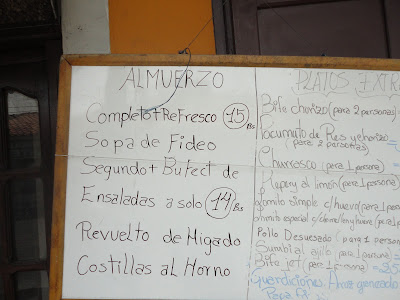 ALMUERZO
Completo+Refresco 15 Bs
Sopa de Fideo
Segundo+Bufect de
Ensaladas a solo 14 Bs
Revuelto de Higado
Costillas al Horno
PLATOS EXTRA
Bife chorizo (para 2 personas)
de Res
(para 2 personas)
Churrasco (para 1 persona)
al limon (para 1 persona)
lomito simple c/huevo (para 1
especial
Pollo Desuesado (para 1 person
Surubi al ajillo (para 1 persona
Bife jet (para 1 persona)
Guardiciones Arroz
Papa